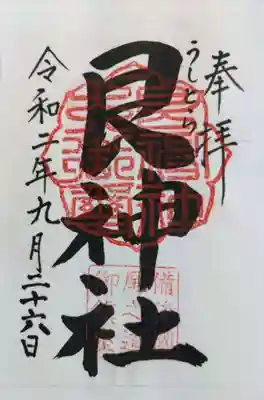 奉拝
うしとら
艮神社
令和二年九月二十六日